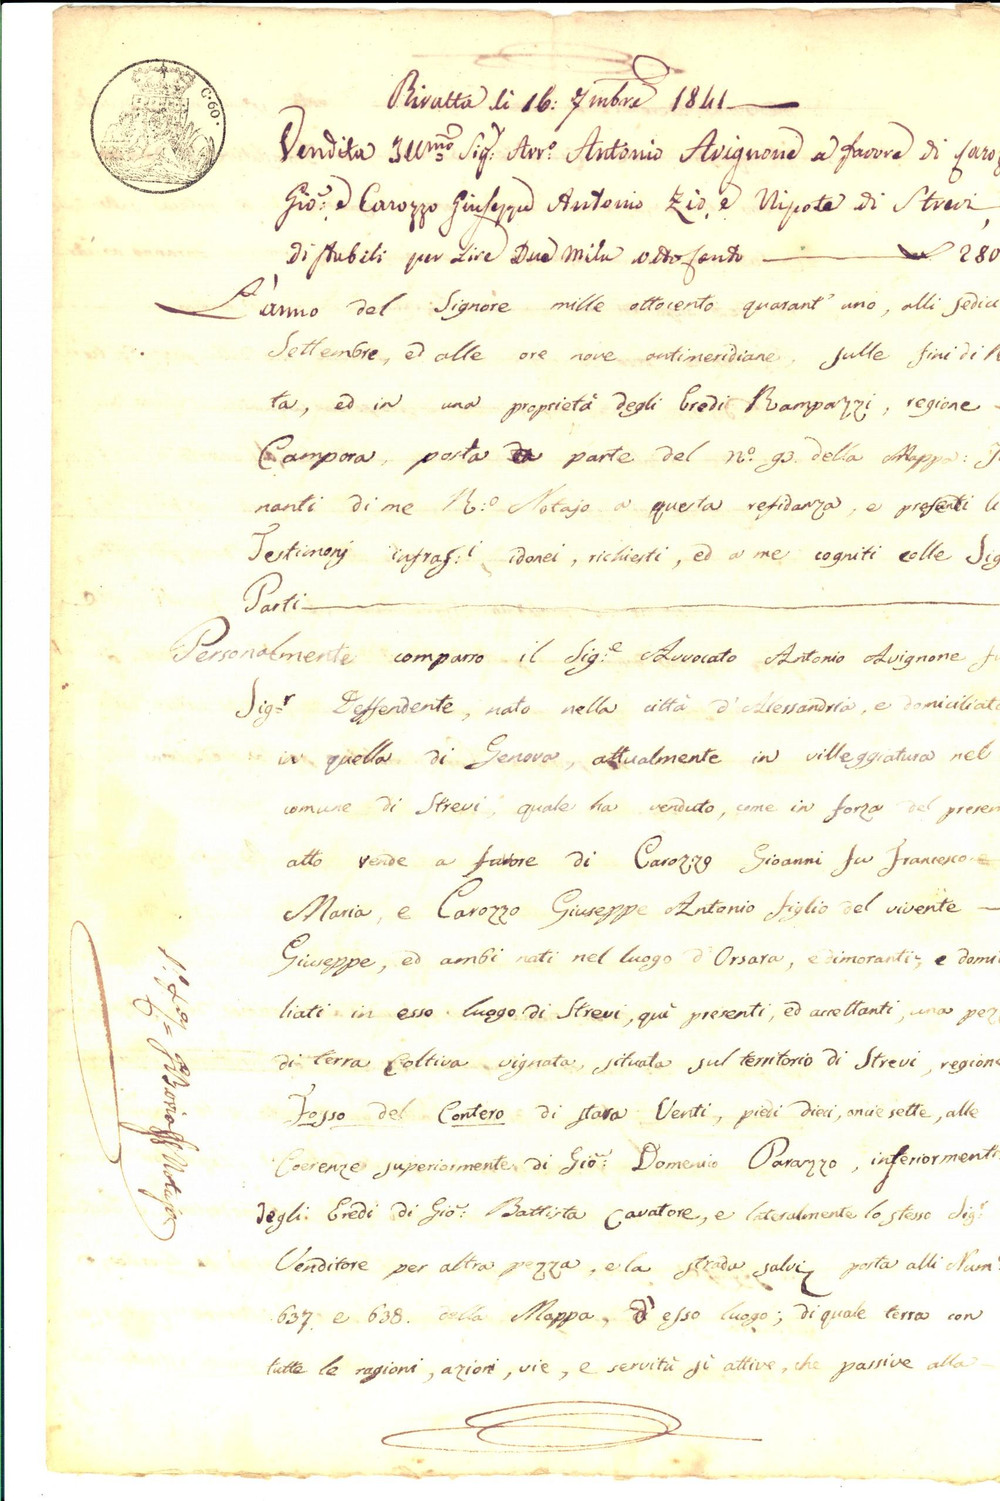 C. 60.
Rivalta li 16: 7mbre 1841
Vendita Illmo Sigr: Avvo Antonio Avignone a favore di Caroz
Gio: e Carozzo Giuseppe Antonio Zio, e Nipote di Strevi
di stabili per Lire Due Mila ottocento 280
L'anno del Signore mille ottocento quarant'uno, alli sedici
Settembre, ed alle ore nove antimeridiane, sulle fini di R
ta, ed in una proprietà degli Eredi Rampazzi, regione
Campora, posta parte del n.o 90 della Mappa:
nanti di me R.o Notajo a questa residanza, e presenti li
Testimonj infras.i idonei, richiesti, ed a me cogniti colle Sig
Parti
Personalmente comparso il Sig.e Avvocato Antonio Avignone fu
Sig.r Deffendente, nato nella città d'Alessandria, e domiciliato
in quella di Genova, attualmente in villeggiatura nel
comune di Strevi, quale ha venduto, come in forza del presen
atto vende a favore di Carozzo Gioanni fu Francesco
Maria, e Carozzo Giuseppe Antonio figlio del vivente
Giuseppe, ed ambi nati nel luogo d'Orsara, e dimoranti, e domi
liati in esso luogo di Strevi, quì presenti, ed accettanti, una pez
di terra Coltiva vignata, situata sul territorio di Strevi, regione
Fosso del Contero di stara Venti, piedi dieci, oncie sette, alle
Coerenze superiormente di Gio: Domenico Parazzo, inferiormente
degli Eredi di Gio: Battista Cavatore, e lateralmente lo stesso Sigr
Venditore per altra pezza, e la strada salvi posta alli Num
637. e 638. della Mappa, d'esso luogo; di quale terra con
tutte le ragioni, azioni, vie, e servitù sì attive, che passive alla
Notajo